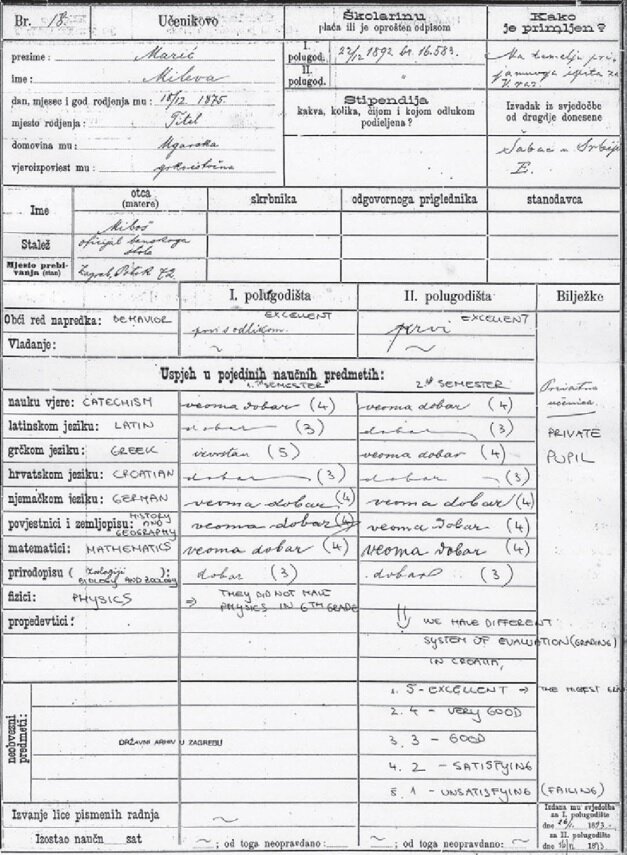 Br. 18.
Učenikovo
Školarinu
plaća ili je oprošten odpisom
Kako
je primljen?
prezime: Marić
ime: Mileva
dan, mjesec i god rodjenja mu: 18/12 1875.
mjesto rodjenja: Titel
domovina mu: Ugarska
vjeroizpoviest mu: grkoistočna
I. polugod. 22/12 1892 br. 16.583.
II. polugod. "
Stipendija
kakva, kolika, čijom i kojom odlukom
podieljena?
Na temelju pri-
jamnoga ispita za
V. raz.
Izvadak iz svjedočbe
od drugdje donesene
Šabac u Srbiji
E.
Ime
otca
(matere)
skrbnika
odgovornoga priglednika
stanodavca
Miloš
Stalež
oficijal banskoga
stola
Mjesto prebi-
vanja (stan)
Zagreb, Potok 72
I. polugodišta
II. polugodišta
Bilježke
Obći red napredka: BEHAVIOR
EXCELLENT
prvi s odlikom.
EXCELLENT
prvi
Vladanje: ~ ~
Uspjeh u pojedinih naučnih predmetih:
1.ST SEMESTER
2nd SEMESTER
nauku vjere: CATECHISM veoma dobar (4) veoma dobar (4)
latinskom jeziku: LATIN dobar (3) dobar (3)
grčkom jeziku: GREEK izvrstan (5) veoma dobar (4)
hrvatskom jeziku: CROATIAN dobar (3) dobar (3)
njemačkom jeziku: GERMAN veoma dobar (4) veoma dobar (4)
povjestnici i zemljopisu: HISTORY AND GEOGRAPHY veoma dobar (4) veoma dobar (4)
matematici: MATHEMATICS veoma dobar (4) veoma dobar (4)
prirodopisu (Zoologiji): BIOLOGY AND ZOOLOGY dobar (3) dobar (3)
Privatna
učenica.
PRIVATE
PUPIL
fizici: PHYSICS ⇒ THEY DID NOT HAVE
PHYSICS IN 6TH GRADE
propedevtici:
WE HAVE DIFFERENT
SYSTEM OF EVALUATION (GRADING)
IN CROATIA,
1. 5 - EXCELLENT → THE HIGEST
2. 4 - VERY GOOD
3. 3 - GOOD
4. 2 - SATISFYING
5. 1 - UNSATISFYING (FAILING)
neobvezni
predmeti:
DRŽAVNI ARHIV U ZAGREBU
Izvanje lice pismenih radnja ~
Izostao naučn sat ~; od toga neopravdano: ~; od toga neopravdano:
Izdana mu svjedočba
za I. polugodište
dne 1893.
za II. polugodište
dne 1893